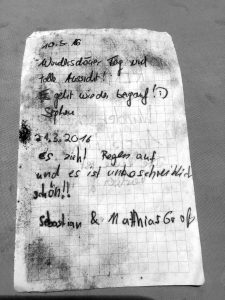 10.3.16
Wunderschöner Tag und
tolle Aussicht!
Es geht wieder bergauf! :)
Stephan
21.3.2016
Es zieht Regen auf
und es ist unbeschreiblich
schön!!
Sebastian & Matthias Graf